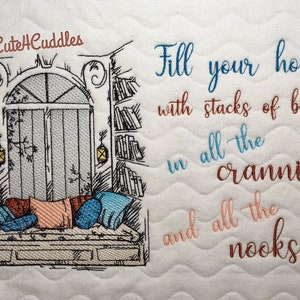 Cute4Cuddles
Fill your
with stacks of
in all the
and all the
nooks